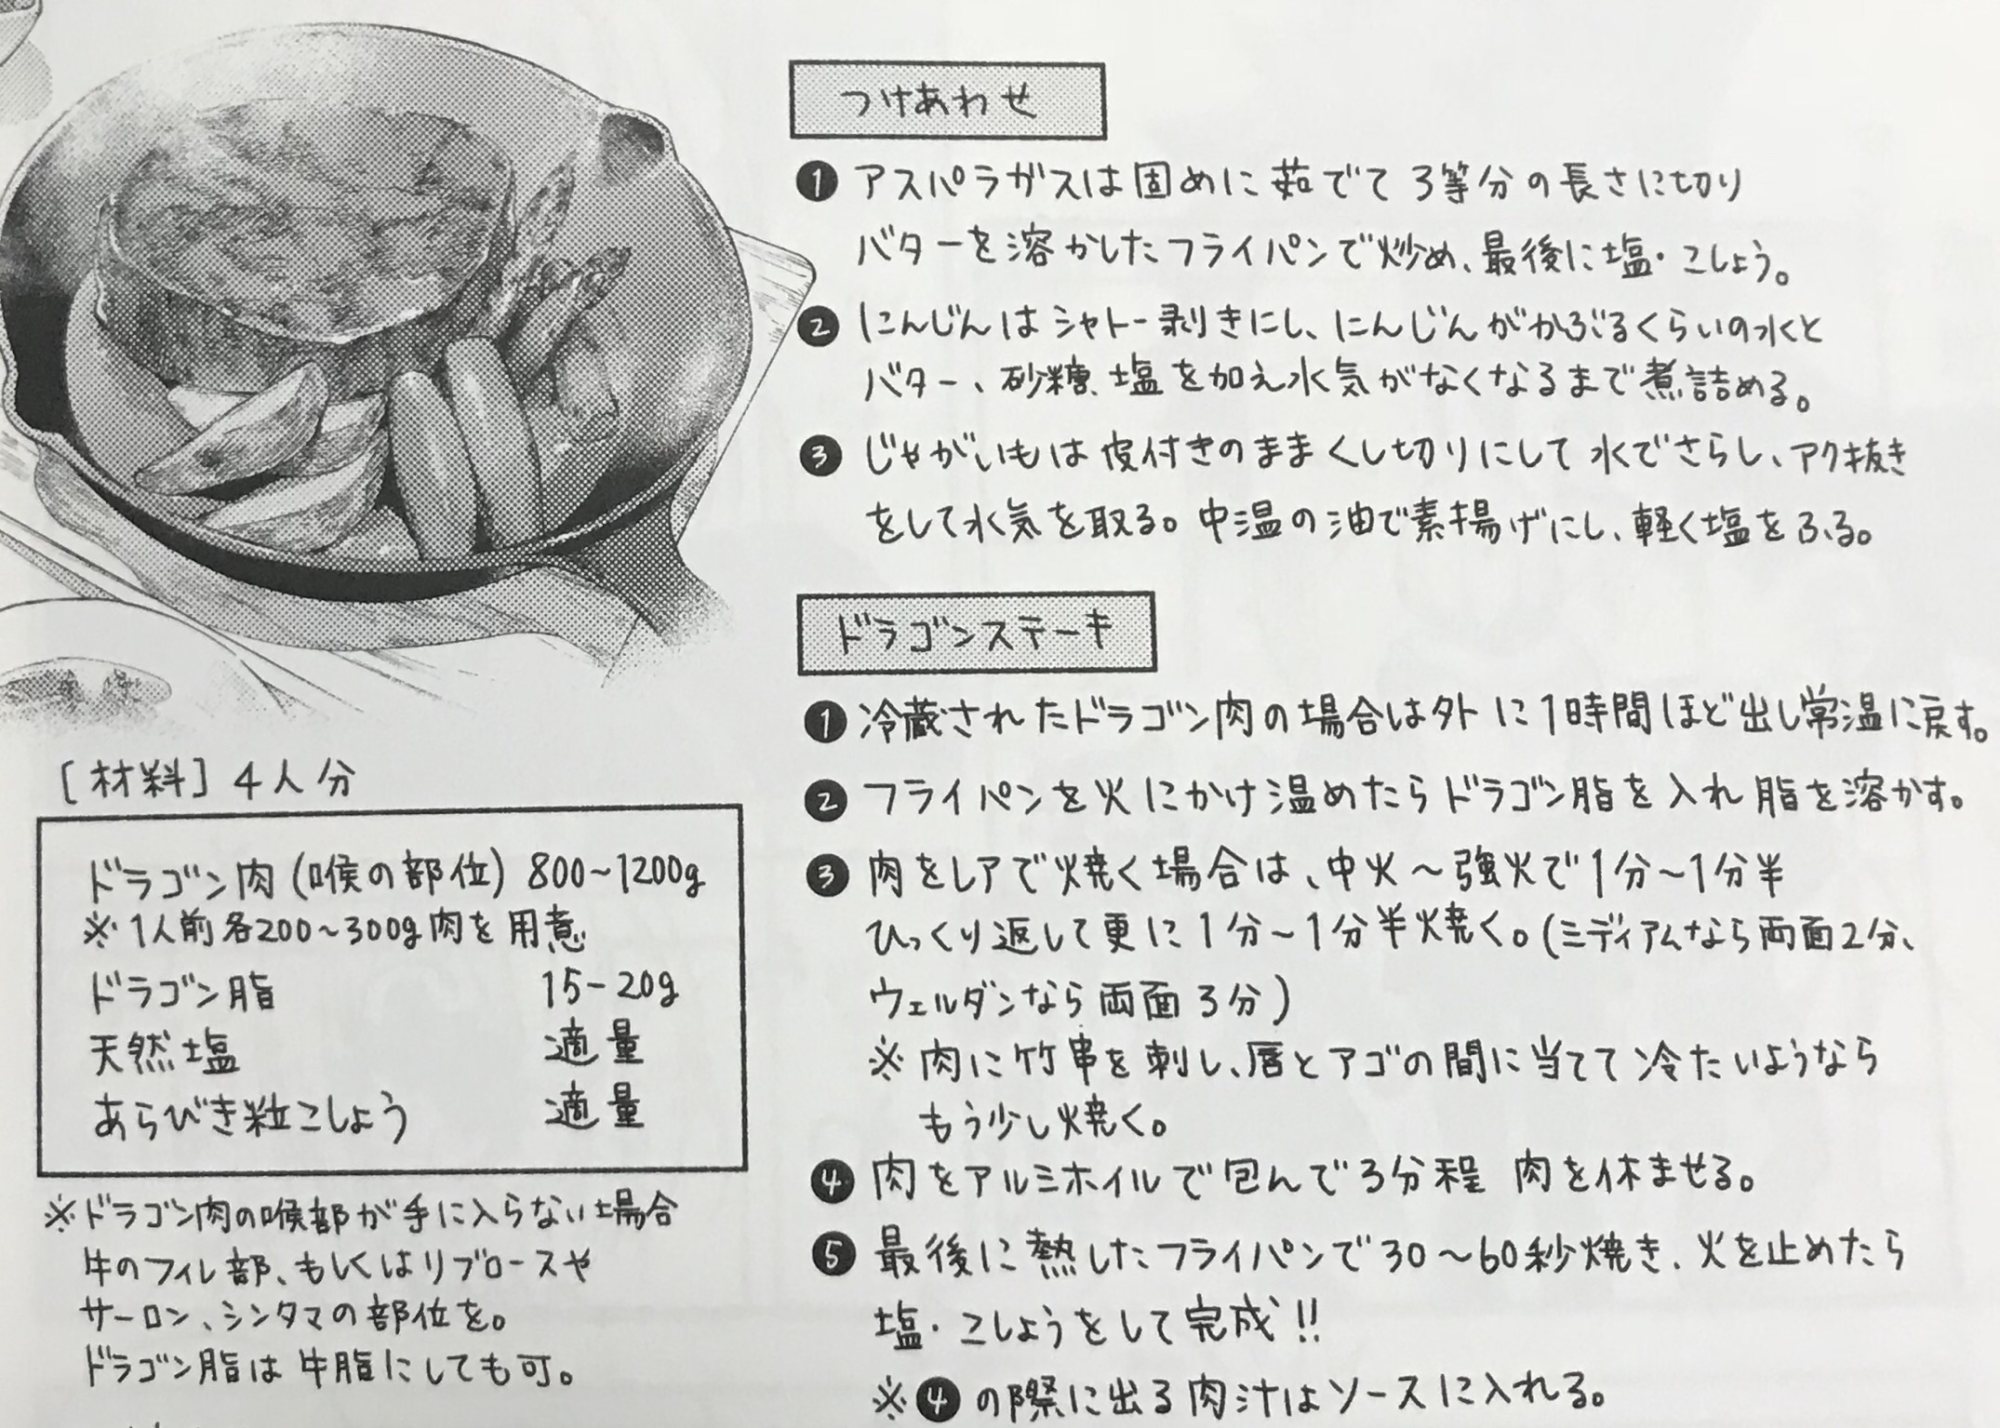 [材料] 4人分
ドラゴン肉(喉の部位) 800~1200g
※1人前各200~300g肉を用意
ドラゴン脂 15-20g
天然塩 適量
あらびき粒こしょう 適量
※ドラゴン肉の喉部が手に入らない場合
牛のフィレ部、もしくはリブロースや
サーロン、シンタマの部位を。
ドラゴン脂は牛脂にしても可。
つけあわせ
❶アスパラガスは固めに茹でて3等分の長さに切り
バターを溶かしたフライパンで炒め、最後に塩・こしょう。
❷にんじんはシャトー剥きにし、にんじんがかぶるくらいの水と
バター、砂糖、塩を加え水気がなくなるまで煮詰める。
❸じゃがいもは皮付きのままくし切りにして水でさらし、アク抜き
をして水気を取る。中温の油で素揚げにし、軽く塩をふる。
ドラゴンステーキ
❶冷蔵されたドラゴン肉の場合は外に1時間ほど出し常温に戻す。
❷フライパンを火にかけ温めたらドラゴン脂を入れ脂を溶かす。
❸肉をレアで焼く場合は、中火~強火で1分~1分半
ひっくり返して更に1分~1分半焼く。(ミディアムなら両面2分、
ウェルダンなら両面3分)
※肉に竹串を刺し、唇とアゴの間に当てて冷たいようなら
もう少し焼く。
❹肉をアルミホイルで包んで3分程 肉を休ませる。
❺最後に熱したフライパンで30~60秒焼き、火を止めたら
塩・こしょうをして完成!!
※❹の際に出る肉汁はソースに入れる。